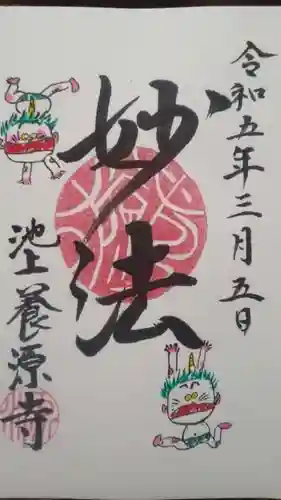 令和五年三月五日
妙法
池上養源寺